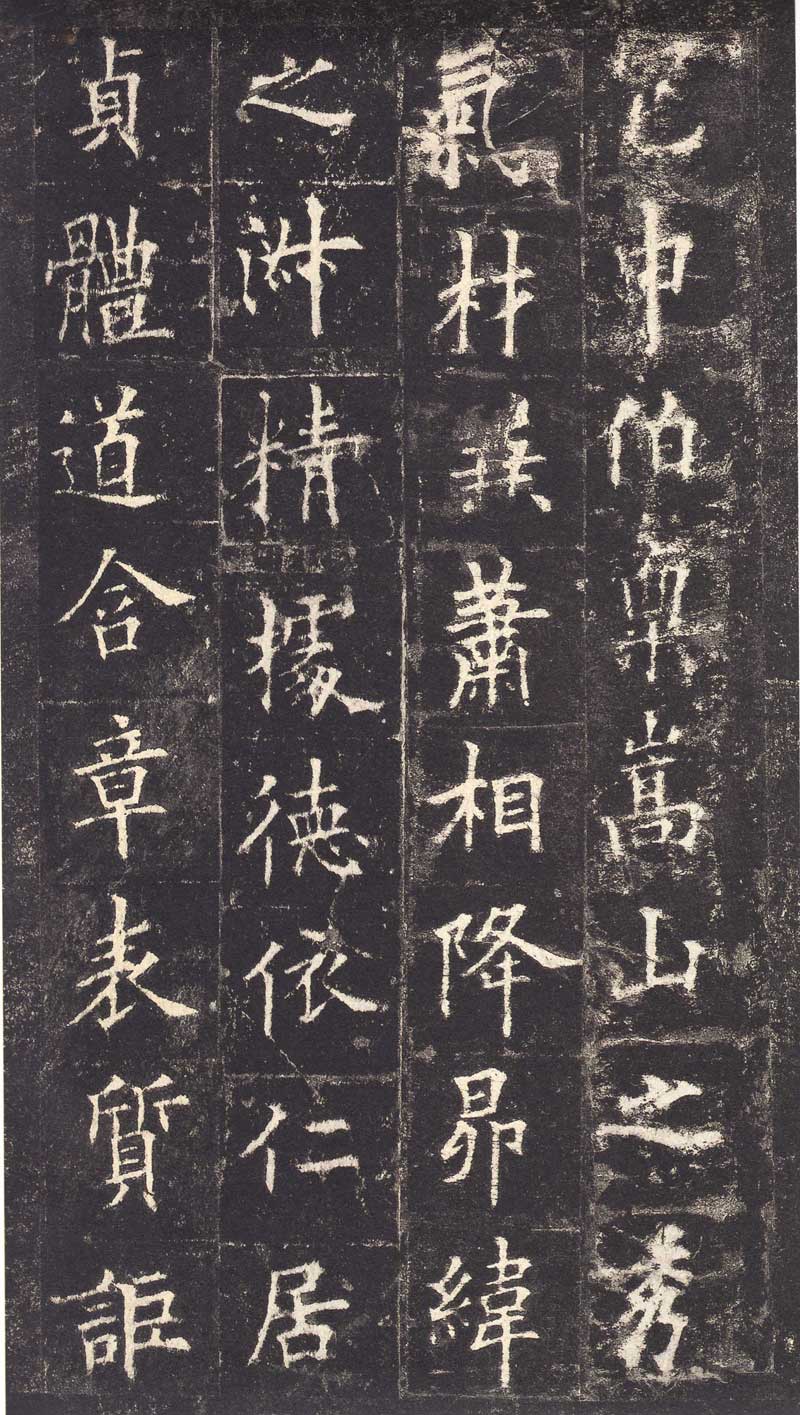 已申伯稟嵩山之秀
氣材䇿蕭相降昴緯
之淋精據德依仁居
貞體道含章表質詎